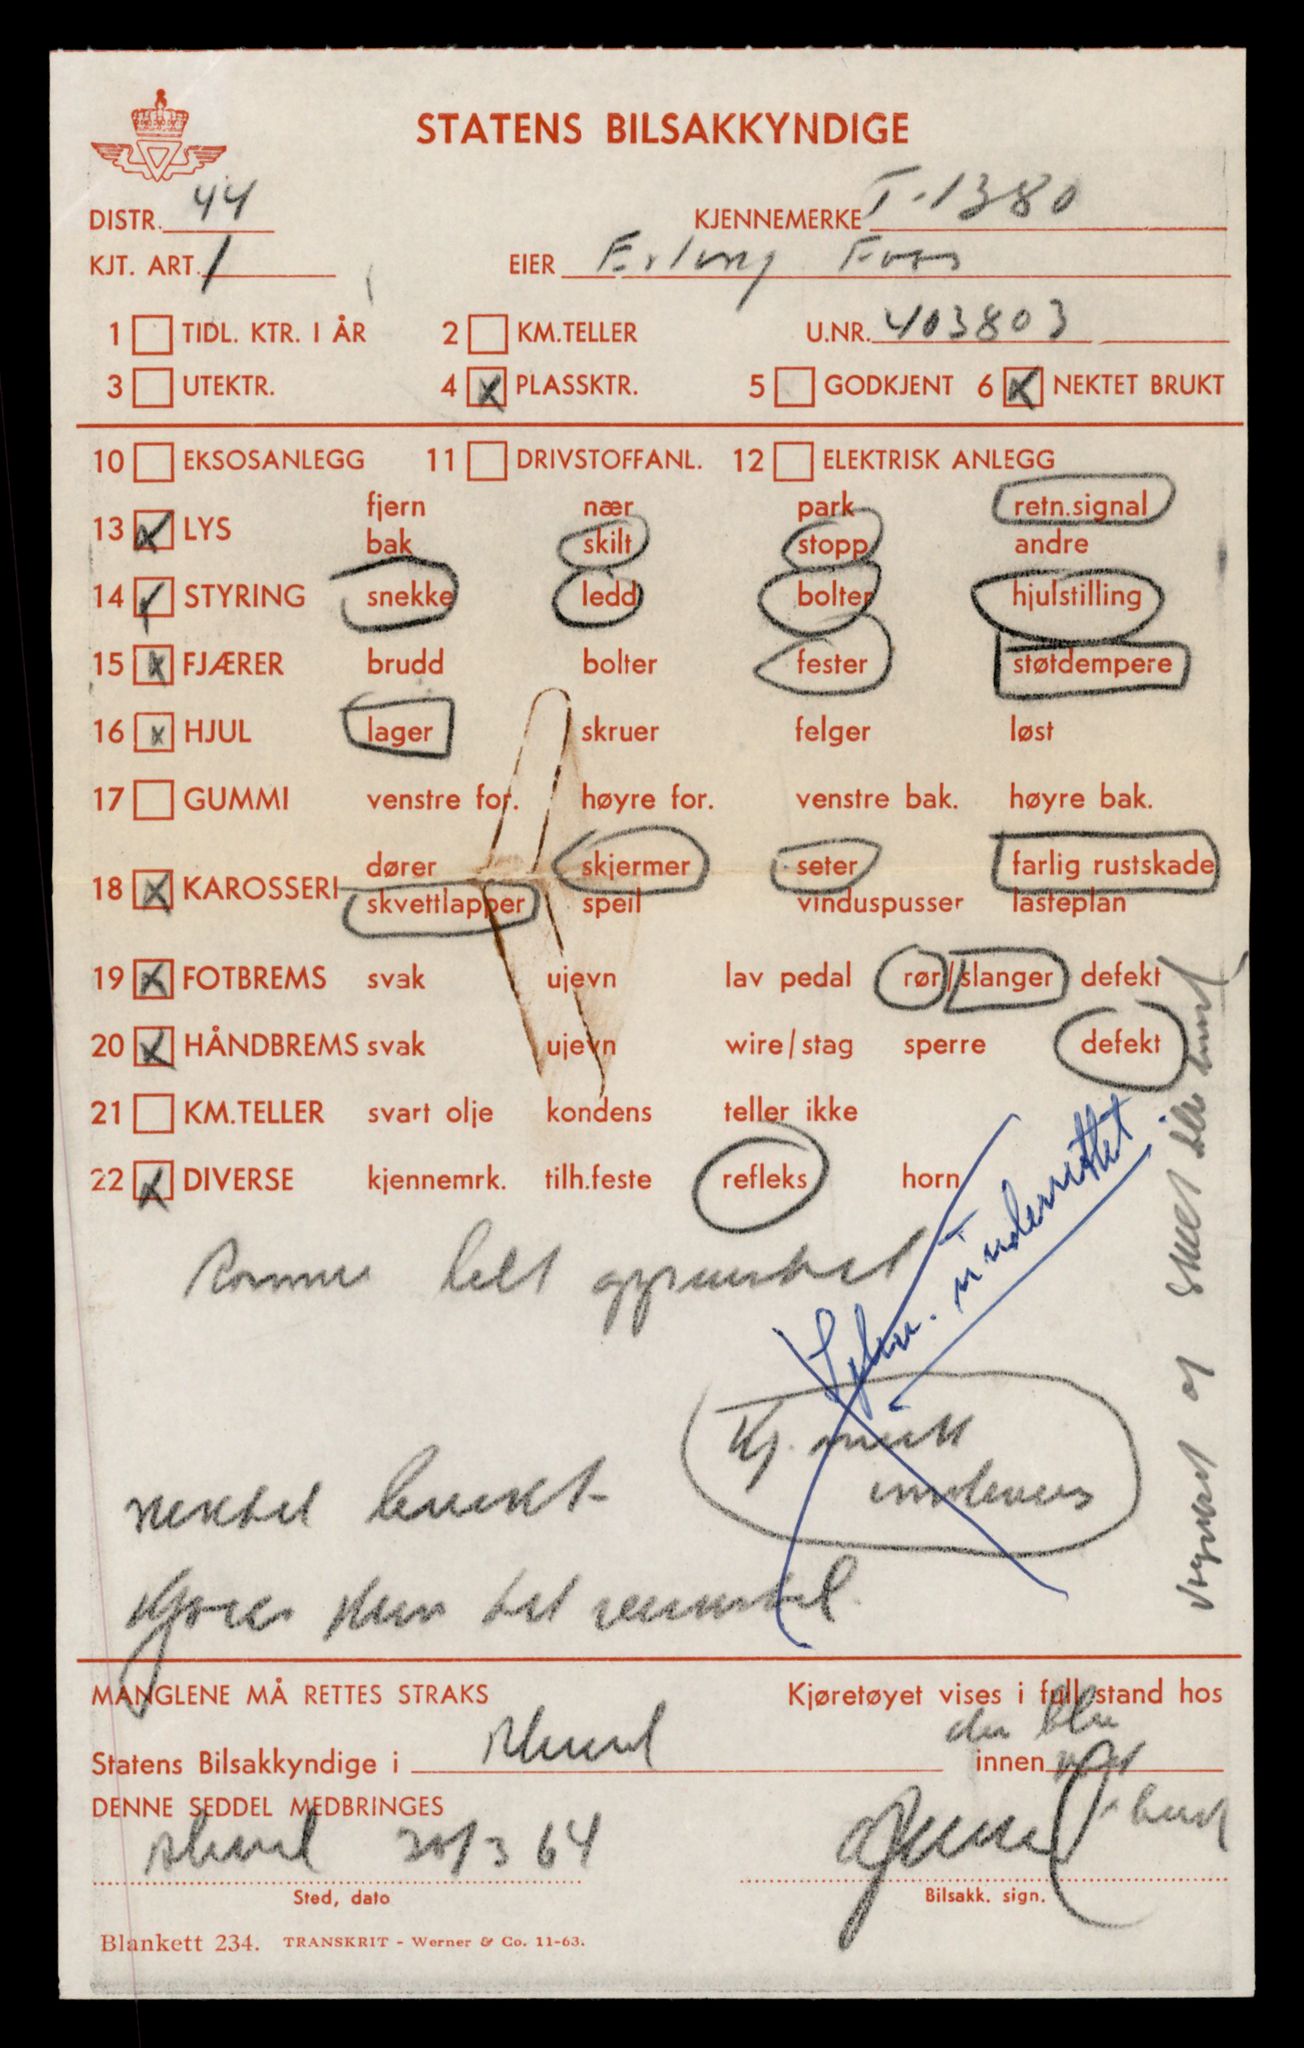 STATENS BILSAKKYNDIGE
DISTR. 44 KJENNEMERKE T-1380
KJT. ART. 1 EIER Erling Foss
1 TIDL. KTR. I ÅR 2 KM.TELLER U.NR. 403803
3 UTEKTR. 4 x PLASSKTR. 5 GODKJENT 6 x NEKTET BRUKT
10 EKSOSANLEGG 11 DRIVSTOFFANL. 12 ELEKTRISK ANLEGG
fjern nær park retn.signal
13 x LYS
bak skilt stopp andre
14 STYRING snekke ledd bolter hjulstilling
15 x FJÆRER brudd bolter fester støtdempere
16 x HJUL lager skruer felger løst
17 GUMMI venstre for. høyre for. venstre bak. høyre bak.
dører skjermer seter farlig rustskade
18 x KAROSSERI
skvettlapper speil vinduspusser lasteplan
19 x FOTBREMS svak ujevn lav pedal rør/slanger defekt
20 x HÅNDBREMS svak ujevn wire/stag sperre defekt
21 KM.TELLER svart olje kondens teller ikke
22 x DIVERSE kjennemrk. tilh.feste refleks horn
Ramme helt opprustet
underrettet
Kj. merk
innleveres
nektet brukt
vognen og skilt ble
MANGLENE MÅ RETTES STRAKS Kjøretøyet vises i full stand hos
den ble
Statens Bilsakkyndige i innen
DENNE SEDDEL MEDBRINGES
20/3 64
Sted, dato Bilsakk. sign.
Blankett 234. TRANSKRIT - Werner & Co. 11-63.